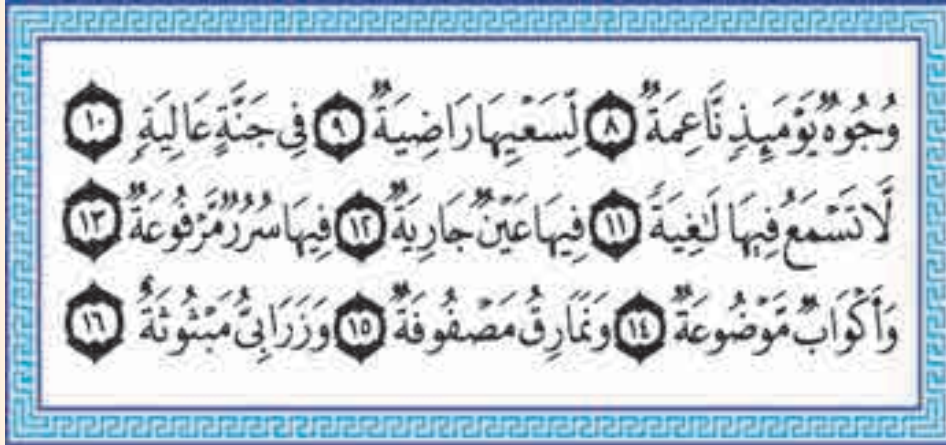 وُجُوهٌ يَوْمَئِذٍ نَّاعِمَةٌ ٨ لِّسَعْيِهَا رَاضِيَةٌ ٩ فِى جَنَّةٍ عَالِيَةٍ ١٠
لَّا تَسْمَعُ فِيهَا لَٰغِيَةً ١١ فِيهَا عَيْنٌ جَارِيَةٌ ١٢ فِيهَا سُرُرٌ مَّرْفُوعَةٌ ١٣
وَأَكْوَابٌ مَّوْضُوعَةٌ ١٤ وَنَمَارِقُ مَصْفُوفَةٌ ١٥ وَزَرَابِىُّ مَبْثُوثَةٌ ١٦